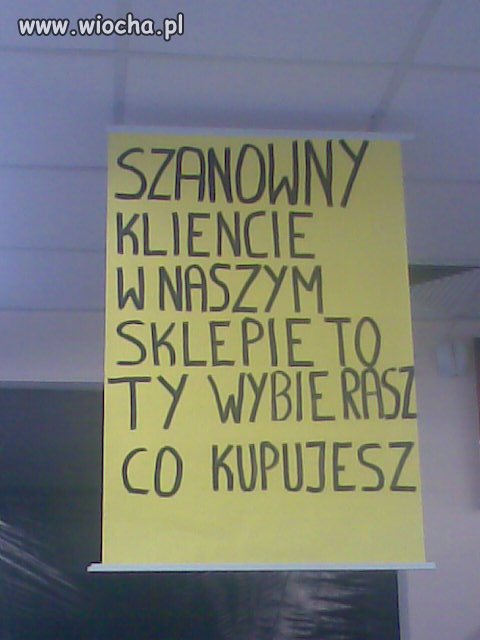 www.wiocha.pl
SZANOWNY
KLIENCIE
W NASZYM
SKLEPIE TO
TY WYBIERASZ
CO KUPUJESZ